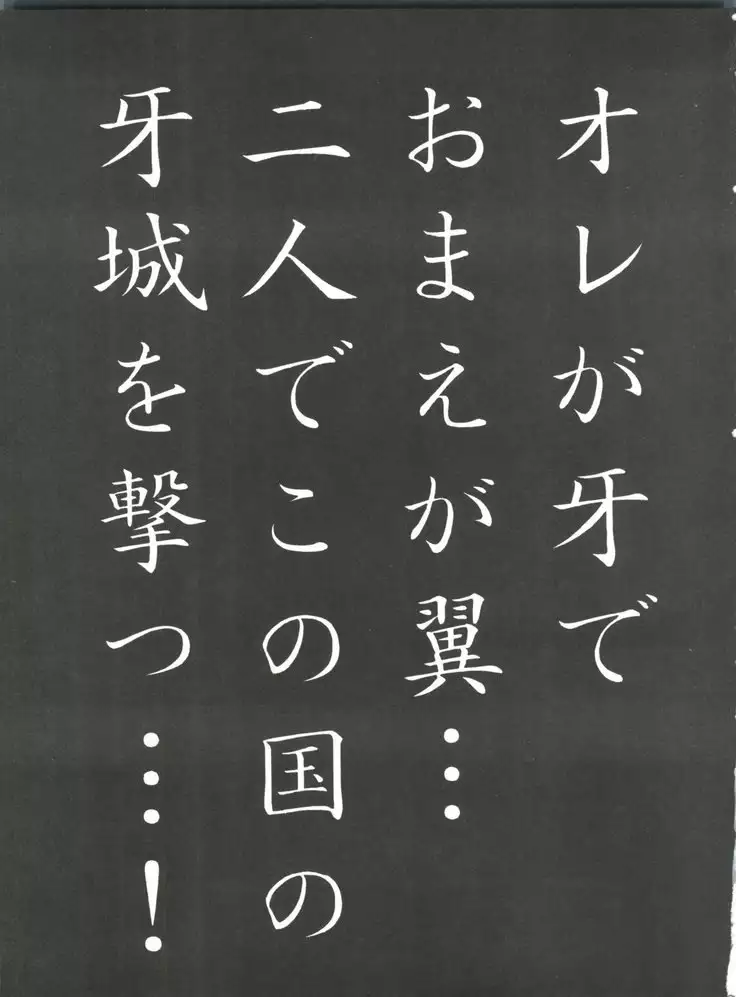 オレが牙で
おまえが翼…
二人でこの国の
牙城を撃つ…！